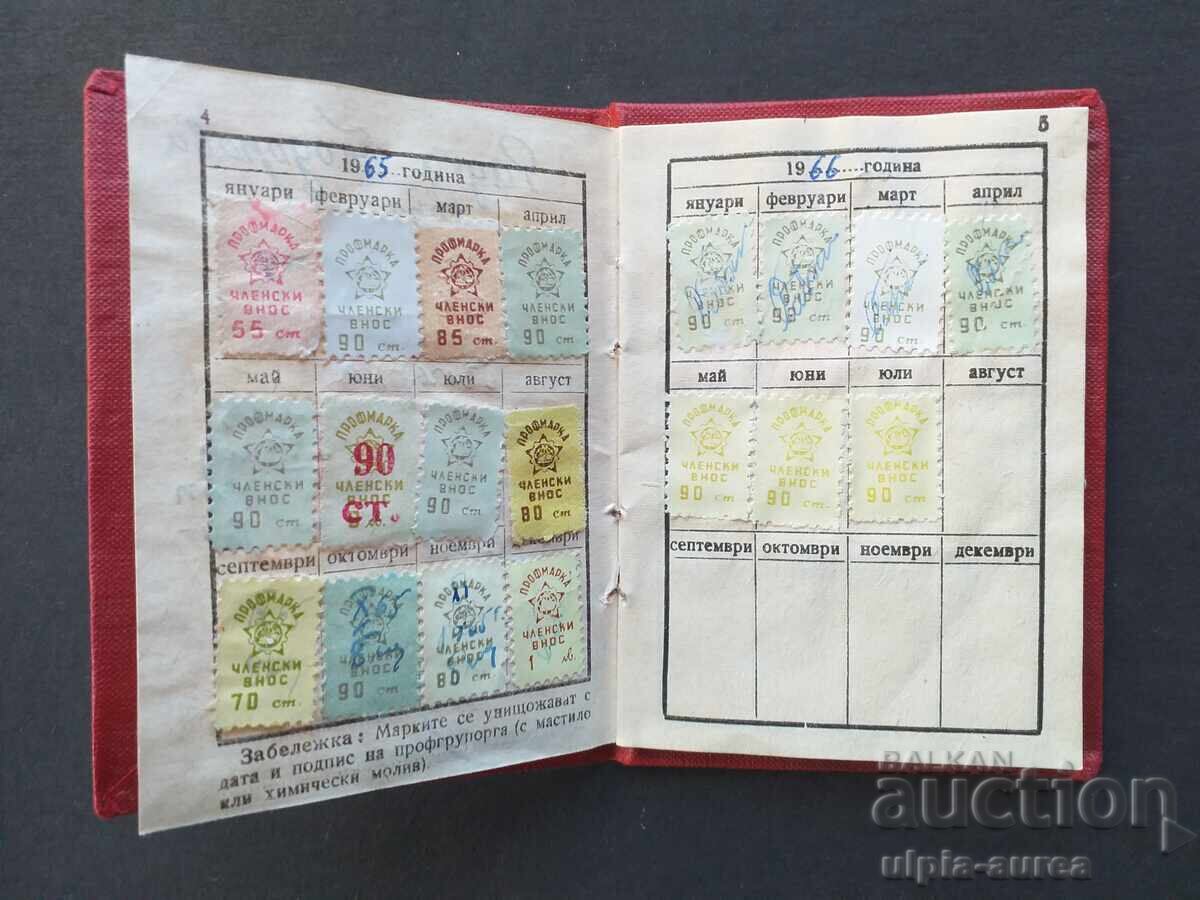 4
1965 година
януари февруари март април
ПРОФМАРКА ПРОФМАРКА ПРОФМАРКА ПРОФМАРКА
ЧЛЕНСКИ ЧЛЕНСКИ ЧЛЕНСКИ ЧЛЕНСКИ
ВНОС ВНОС ВНОС ВНОС
55 ст. 90 ст. 85 ст. 90 ст.
май юни юли август
ПРОФМАРКА ПРОФМАРКА ПРОФМАРКА ПРОФМАРКА
90
ЧЛЕНСКИ ЧЛЕНСКИ ЧЛЕНСКИ ЧЛЕНСКИ
ВНОС ВНОС ВНОС ВНОС
90 ст. СТ. лв. 90 ст. 80 ст.
септември октомври ноември декември
ПРОФМАРКА ПРОФМАРКА ПРОФМАРКА ПРОФМАРКА
X 65 XI
ЧЛЕНСКИ ЧЛЕНСКИ ЧЛЕНСКИ ЧЛЕНСКИ
ВНОС ВНОС ВНОС ВНОС
70 ст. 90 ст. 80 ст. 1 лв.
Забележка: Марките се унищожават с
дата и подпис на профгрупорга (с мастило
или химически молив).
5
1966 година
януари февруари март април
ПРОФМАРКА ПРОФМАРКА ПРОФМАРКА ПРОФМАРКА
ЧЛЕНСКИ ЧЛЕНСКИ ЧЛЕНСКИ ЧЛЕНСКИ
ВНОС ВНОС ВНОС ВНОС
90 ст. 90 ст. 90 ст. 90 ст.
май юни юли август
ПРОФМАРКА ПРОФМАРКА ПРОФМАРКА
ЧЛЕНСКИ ЧЛЕНСКИ ЧЛЕНСКИ
ВНОС ВНОС ВНОС
90 ст. 90 ст. 90 ст.
септември октомври ноември декември
BALKAN
auction
ulpia-aurea